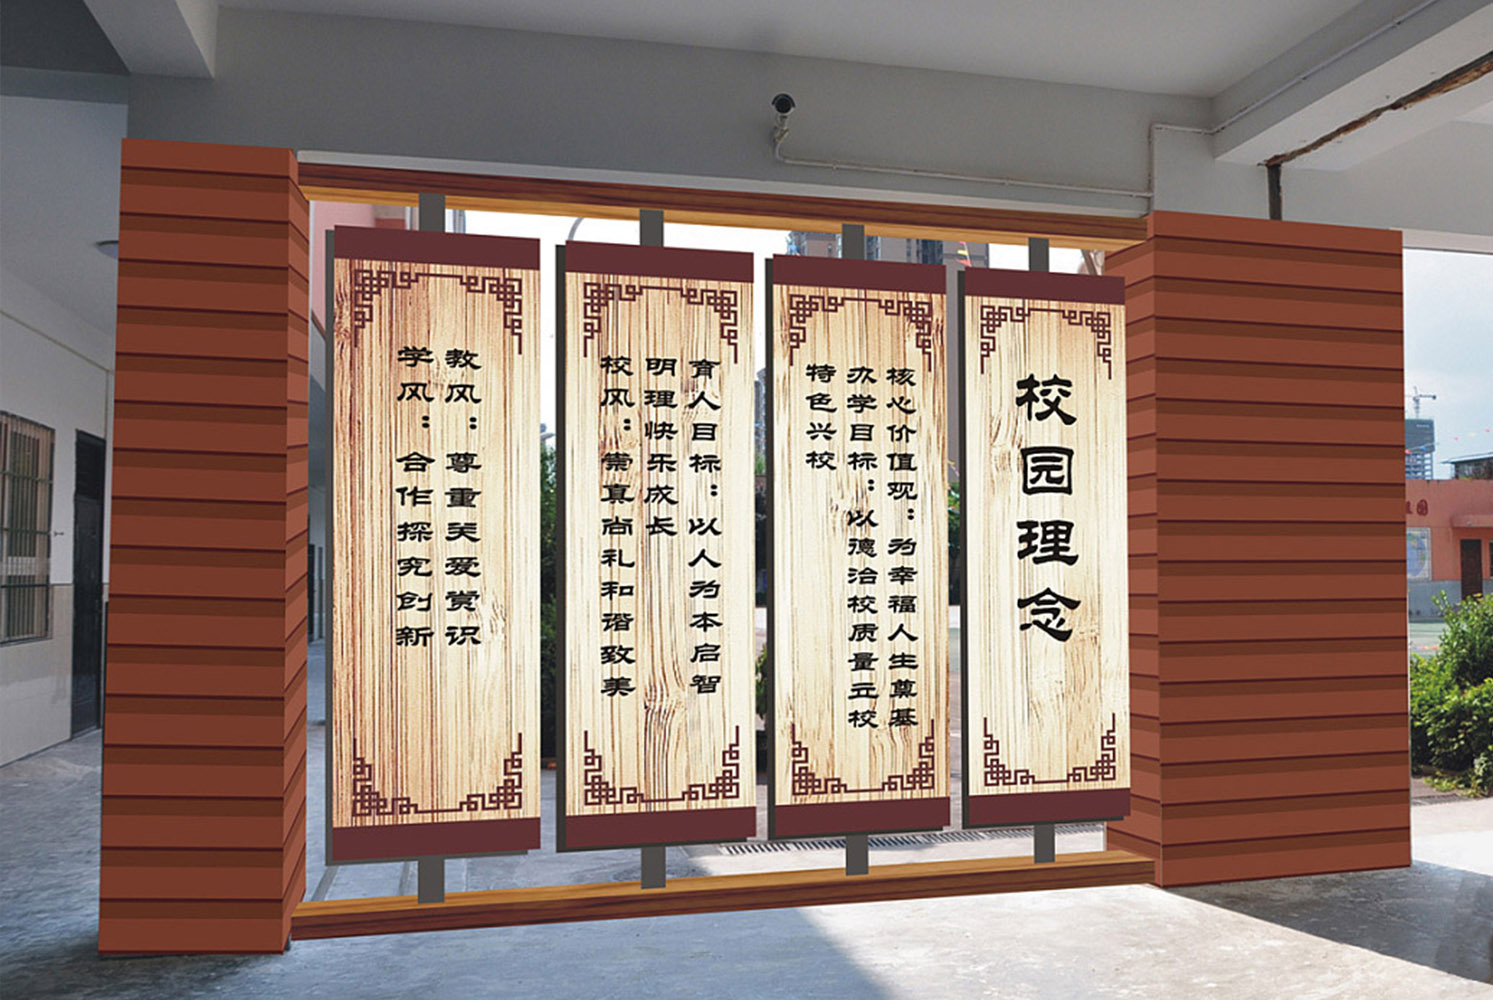 校园理念
核心价值观：为幸福人生奠基
办学目标：以德治校质量立校
特色兴校
育人目标：以人为本启智
明理快乐成长
校风：崇真尚礼和谐致美
教风：尊重关爱赏识
学风：合作探究创新